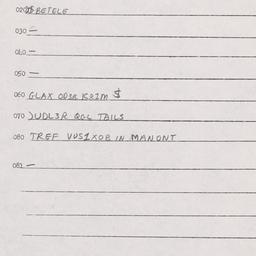 020 BETELE
030 —
040 —
050 —
060 GLAX OD3R KRIM $
070 JUDL3R QOL TAILS
080 TREF VUS1XOB IN MANONT
081 —